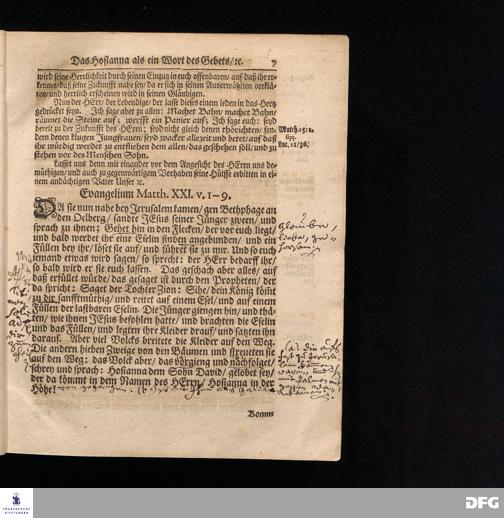 Das Hosianna als ein Wort des Gebets/ ꝛc. 7
wird seine Herrlichkeit durch seinen Einzug in euch offenbaren/ auf daß ihr er-
kennet/ daß seine Zukunfft nahe sey/ da er sich in seinen Auserwählten verklä-
ren/ und herrlich erscheinen wird in seinen Gläubigen.
Nun der HErr/ der Lebendige/ der lasse dieses einem jeden in das Hertz
gedrücket seyn. Ich sage aber zu allen: Machet Bahn/ machet Bahn/
räumet die Steine auf; werfft ein Panier auf; Ich sage euch: seyd
bereit zu der Zukunfft des HErrn; seyd nicht gleich denen thörichten/ son-
dern denen klugen Jungfrauen/ seyd wacker allezeit und betet/ auf daß
ihr würdig werdet zu entfliehen dem allen/ das geschehen soll/ und zu
stehen vor des Menschen Sohn.
Matth. 25/ 1.
Luc. 21/ 36.
Lasset uns denn mit einander vor dem Angesicht des HErrn uns de-
müthigen/ und auch zu gegenwärtigem Vorhaben seine Hülffe erbitten in ei-
nem andächtigen Vater Unser ꝛc.
Evangelium Matth. XXI. v. 1-9.
DA sie nun nahe bey Jerusalem kamen/ gen Bethphage an
den Oelberg/ sandte JEsus seiner Jünger zween/ und
sprach zu ihnen: Gehet hin in den Flecken/ der vor euch liegt/
und bald werdet ihr eine Eselin finden angebunden/ und ein
Füllen bey ihr/ löset sie auf/ und führet sie zu mir. Und so euch
iemand etwas wird sagen/ so sprecht: der HErr bedarf ihr/
so bald wird er sie euch lassen. Das geschach aber alles/ auf
daß erfüllet würde/ das gesaget ist durch den Propheten/ der
da spricht: Saget der Tochter Zion: Sihe/ dein König kömt
zu dir sanfftmüthig/ und reitet auf einem Esel/ und auf einem
Füllen der lastbaren Eselin. Die Jünger giengen hin/ und thä-
ten/ wie ihnen JEsus befohlen hatte/ und brachten die Eselin
und das Füllen/ und legten ihre Kleider drauf/ und satzten ihn
darauf. Aber viel Volcks breitete die Kleider auf den Weg.
Die andern hieben Zweige von den Bäumen und streueten sie
auf den Weg: das Volck aber/ das vorgieng und nachfolget/
schrey und sprach: Hosianna dem Sohn David/ gelobet sey/
der da kömmt in dem Namen des HErrn/ Hosianna in der
Höhe!
Komm
FRANCKESCHE STIFTUNGEN
DFG